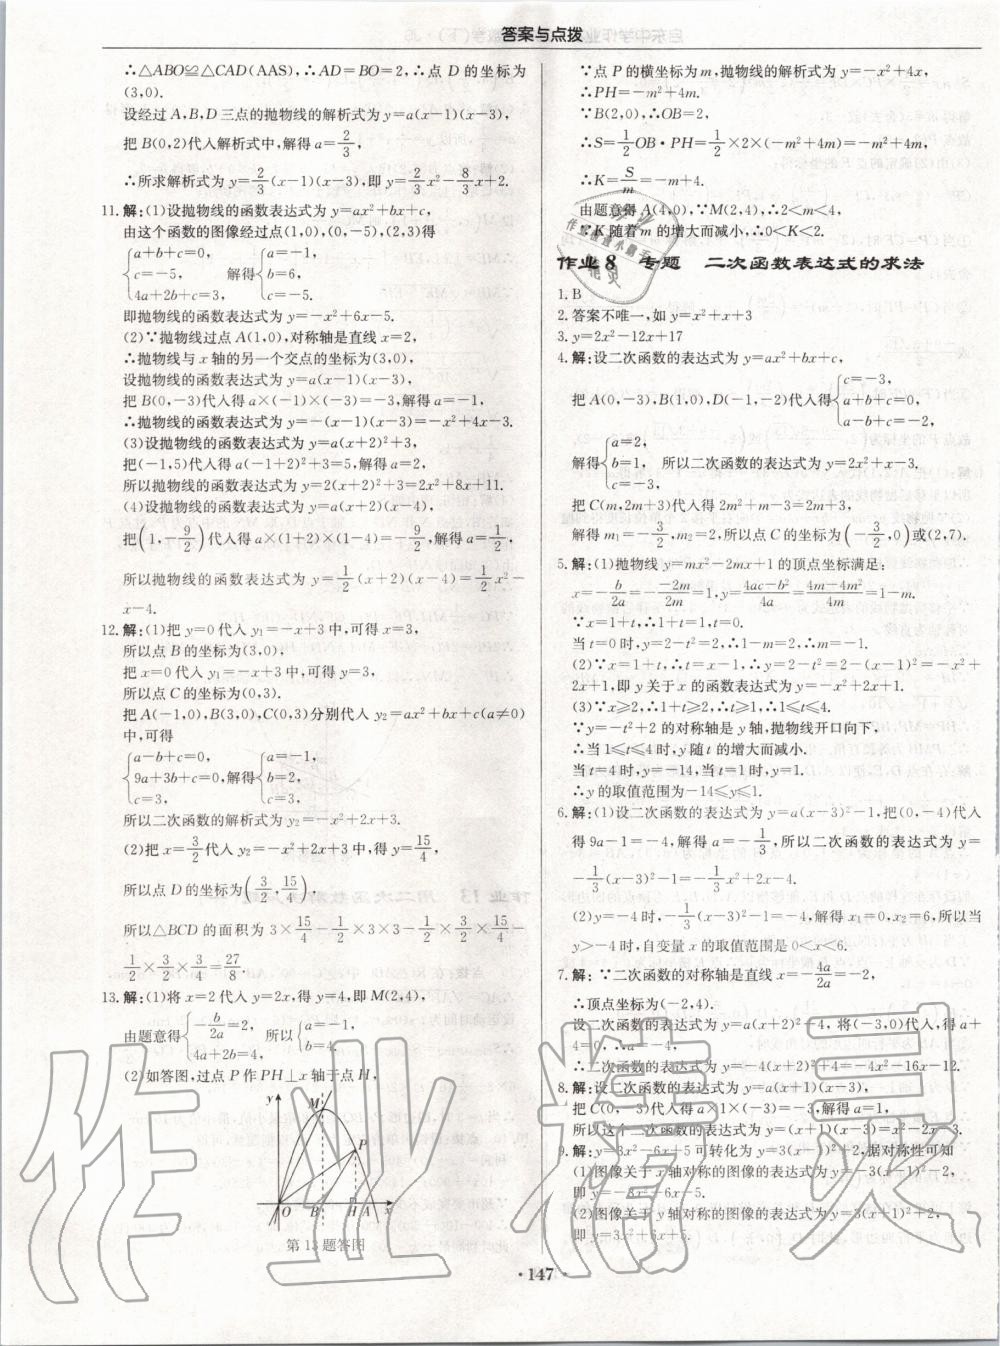 答案与点拨
∴△ABO≌△CAD(AAS),∴AD=BO=2,∴点 D 的坐标为
(3,0).
设经过 A,B,D 三点的抛物线的解析式为 y=a(x-1)(x-3),
把 B(0,2)代入解析式中,解得 a=2/3,
∴所求解析式为 y=2/3(x-1)(x-3),即 y=2/3x²-8/3x+2.
11. 解:(1)设抛物线的函数表达式为 y=ax²+bx+c,
由这个函数的图像经过点(1,0),(0,-5),(2,3)得
{a+b+c=0, c=-5, 4a+2b+c=3, 解得{a=-1, b=6, c=-5.
即抛物线的函数表达式为 y=-x²+6x-5.
(2)∵抛物线过点 A(1,0),对称轴是直线 x=2,
∴抛物线与 x 轴的另一个交点的坐标为(3,0),
设抛物线的函数表达式为 y=a(x-1)(x-3),
把 B(0,-3)代入得 a×(-1)×(-3)=-3,解得 a=-1,
∴抛物线的函数表达式为 y=-(x-1)(x-3)=-x²+4x-3.
(3)设抛物线的函数表达式为 y=a(x+2)²+3,
把(-1,5)代入得 a(-1+2)²+3=5,解得 a=2,
所以抛物线的函数表达式为 y=2(x+2)²+3=2x²+8x+11.
(4)设抛物线的函数表达式为 y=a(x+2)(x-4),
把(1,-9/2)代入得 a×(1+2)×(1-4)=-9/2,解得 a=1/2,
所以抛物线的函数表达式为 y=1/2(x+2)(x-4)=1/2x²-
x-4.
12. 解:(1)把 y=0 代入 y₁=-x+3 中,可得 x=3,
所以点 B 的坐标为(3,0),
把 x=0 代入 y₁=-x+3 中,可得 y=3,
所以点 C 的坐标为(0,3).
把 A(-1,0),B(3,0),C(0,3)分别代入 y₂=ax²+bx+c(a≠0)
中,可得
{a-b+c=0, 9a+3b+c=0, c=3, 解得{a=-1, b=2, c=3,
所以二次函数的解析式为 y₂=-x²+2x+3.
(2)把 x=3/2代入 y₂=-x²+2x+3 中,得 y=15/4,
所以点 D 的坐标为(3/2,15/4),
所以△BCD 的面积为 3×15/4-1/2×3×3-1/2×3/2×15/4-
1/2×3/2×3/4=27/8.
13. 解:(1)将 x=2 代入 y=2x,得 y=4,即 M(2,4),
由题意得{-b/2a=2, 4a+2b=4, 所以{a=-1, b=4.
(2)如答图,过点 P 作 PH⊥x 轴于点 H,
y M P O B H A x
第 13 题答图
∵点 P 的横坐标为 m,抛物线的解析式为 y=-x²+4x,
∴PH=-m²+4m.
∵B(2,0),∴OB=2,
∴S=1/2OB·PH=1/2×2×(-m²+4m)=-m²+4m,
∴K=S/m=-m+4.
由题意得 A(4,0),∵M(2,4),∴2<m<4,
∵K 随着 m 的增大而减小,∴0<K<2.
作业8 专题 二次函数表达式的求法
1. B
2. 答案不唯一,如 y=x²+x+3
3. y=2x²-12x+17
4. 解:设二次函数的表达式为 y=ax²+bx+c,
把 A(0,-3),B(1,0),D(-1,-2)代入得{c=-3, a+b+c=0, a-b+c=-2,
解得{a=2, b=1, c=-3, 所以二次函数的表达式为 y=2x²+x-3,
把 C(m,2m+3)代入得 2m²+m-3=2m+3,
解得 m₁=-3/2,m₂=2,所以点 C 的坐标为(-3/2,0)或(2,7).
5. 解:(1)抛物线 y=mx²-2mx+1 的顶点坐标满足:
x=-b/2a=--2m/2m=1,y=4ac-b²/4a=4m-4m²/4m=1-m.
∵x=1+t,∴1+t=1,t=0.
当 t=0 时,y=2-t²=2,∴1-m=2,∴m=-1.
(2)∵x=1+t,∴t=x-1,∴y=2-t²=2-(x-1)²=-x²+
2x+1,即 y 关于 x 的函数表达式为 y=-x²+2x+1.
(3)∵x≥2,∴1+t≥2,∴t≥1,∴1≤t≤4.
∵y=-t²+2 的对称轴是 y 轴,抛物线开口向下,
∴当 1≤t≤4 时,y 随 t 的增大而减小.
当 t=4 时,y=-14,当 t=1 时,y=1.
∴y 的取值范围为-14≤y≤1.
6. 解:(1)设二次函数的表达式为 y=a(x-3)²-1,把(0,-4)代入
得 9a-1=-4,解得 a=-1/3,所以二次函数的表达式为 y=
-1/3(x-3)²-1=-1/3x²+2x-4.
(2)y=-4 时,-1/3(x-3)²-1=-4,解得 x₁=0,x₂=6,所以当
y>-4 时,自变量 x 的取值范围是 0<x<6.
7. 解:∵二次函数的对称轴是直线 x=-4a/2a=-2,
∴顶点坐标为(-2,4).
设二次函数的表达式为 y=a(x+2)²+4,将(-3,0)代入,得 a+
4=0,∴a=-4,
∴二次函数的表达式为 y=-4(x+2)²+4=-4x²-16x-12.
8. 解:设二次函数的表达式为 y=a(x+1)(x-3),
把 C(0,-3)代入得 a×1×(-3)=-3,解得 a=1,
所以这个二次函数的表达式为 y=(x+1)(x-3)=x²-2x-3.
9. 解:y=3x²-6x+5 可转化为 y=3(x-1)²+2,据对称性可知
(1)图像关于 x 轴对称的图像的表达式为 y=-3(x-1)²-2,
即 y=-3x²+6x-5.
(2)图像关于 y 轴对称的图像的表达式为 y=3(x+1)²+2,
即 y=3x²+6x+5.
·147·
作业精灵